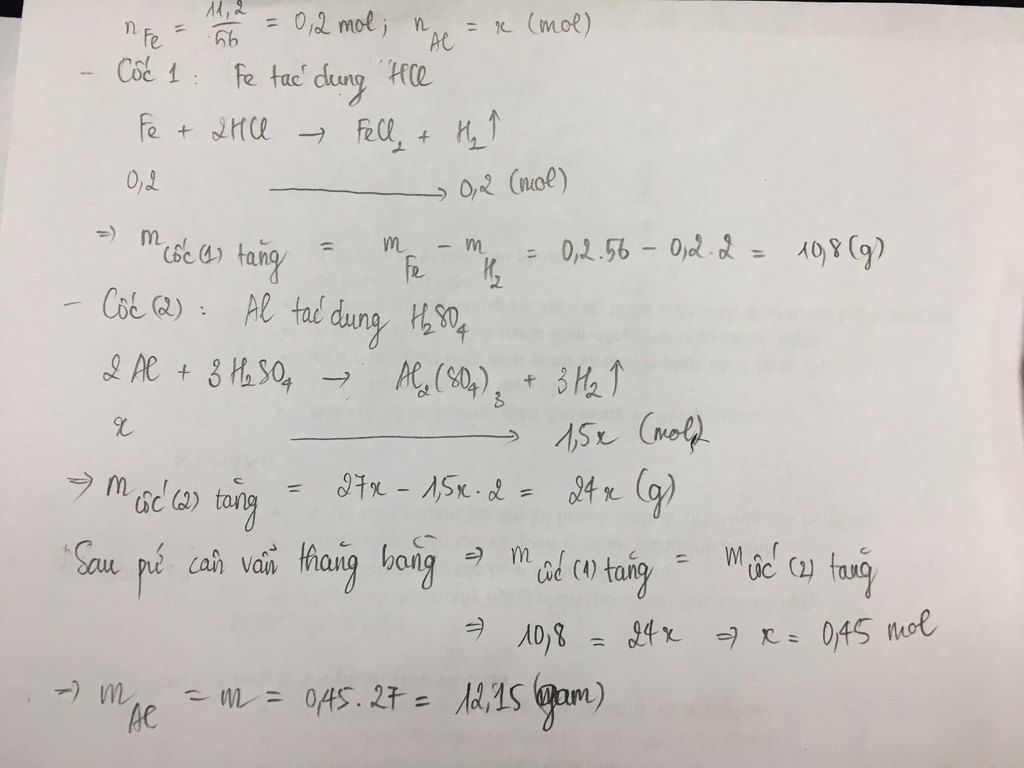 n Fe = 11,2/56 = 0,2 mol; n Al = x (mol)
- Cốc 1: Fe tác dụng HCl
Fe + 2HCl → FeCl2 + H2↑
0,2 → 0,2 (mol)
⇒ m cốc(1) tăng = m Fe - m H2 = 0,2.56 - 0,2.2 = 10,8(g)
- Cốc (2): Al tác dụng H2SO4
2Al + 3H2SO4 → Al2(SO4)3 + 3H2↑
x → 1,5x (mol)
⇒ m cốc(2) tăng = 27x - 1,5x.2 = 24x (g)
Sau pứ cân vẫn thăng bằng ⇒ m cốc(1) tăng = m cốc(2) tăng
⇒ 10,8 = 24x ⇒ x = 0,45 mol
⇒ m Al = m = 0,45.27 = 12,15 (gam)